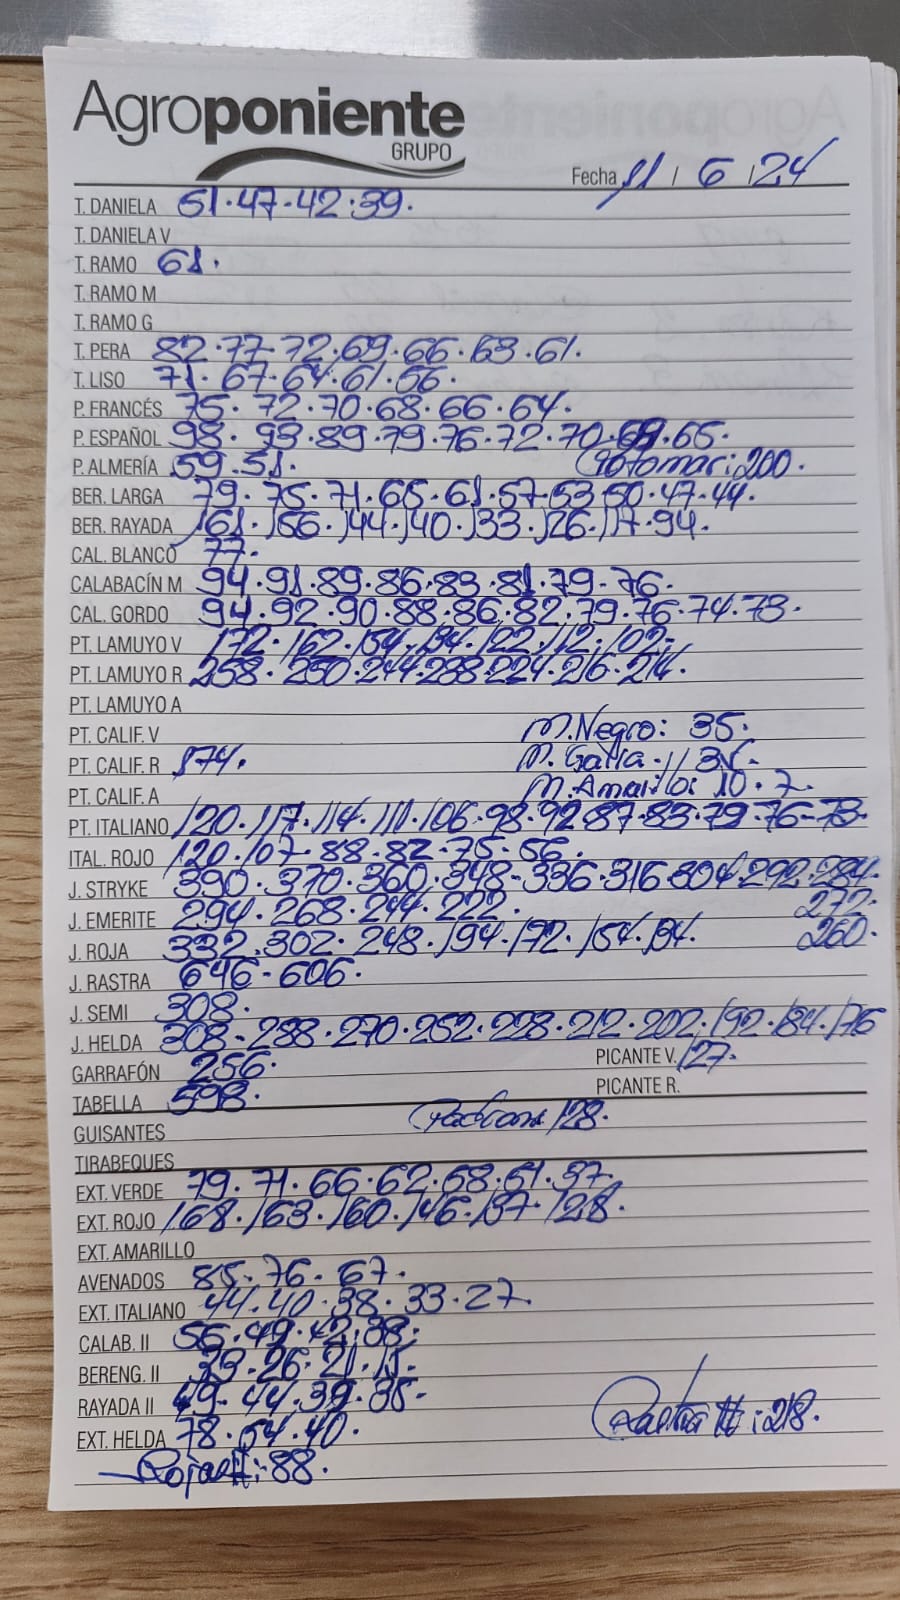 Agroponiente
GRUPO
Fecha 11 / 6 / 24
T. DANIELA 51.47.42.39.
T. DANIELA V
T. RAMO 61.
T. RAMO M
T. RAMO G
T. PERA 82.77.72.69.66.63.61.
T. LISO 71.67.64.61.56.
P. FRANCÉS 75.72.70.68.66.64.
P. ESPAÑOL 98.93.89.79.76.72.70.69.65.
P. ALMERÍA 59.51. 200.
BER. LARGA 79.75.71.65.61.57.53.50.47.44.
BER. RAYADA 161.156.144.140.133.126.117.94.
CAL. BLANCO 77.
CALABACÍN M 94.91.89.86.83.81.79.76.
CAL. GORDO 94.92.90.88.86.82.79.76.74.73.
PT. LAMUYO V 172.162.154.134.122.112.102.
PT. LAMUYO R 258.250.244.238.224.216.214.
PT. LAMUYO A
PT. CALIF. V M. Negro: 35.
PT. CALIF. R 174. M. Galia
PT. CALIF. A M. Amarillo: 10.7.
PT. ITALIANO 120.117.114.111.106.98.92.87.83.79.76-73.
ITAL. ROJO 120.107.88.82.75.56.
J. STRYKE 390.370.360.348-336.316.304.292.284.
272.
J. EMERITE 294.268.244.222.
260.
J. ROJA 332.302.248.194.172.154.134.
J. RASTRA 646-606.
J. SEMI 308.
J. HELDA 308-288.270.252.228.212.202.192.184.176
GARRAFÓN 256. PICANTE V. 127.
TABELLA 598. PICANTE R.
GUISANTES 128.
TIRABEQUES
EXT. VERDE 79.71.66.62.58.51.37.
EXT. ROJO 168.163.160.146.137.128.
EXT. AMARILLO
AVENADOS 85.76.67.
EXT. ITALIANO 44.40.38.33.27.
CALAB. II 56.49.42.38.
BERENG. II 33-26.21.15.
RAYADA II 49-44.39.35-
EXT. HELDA 78.54.40. Rastra II: 218.
Roja II: 88.